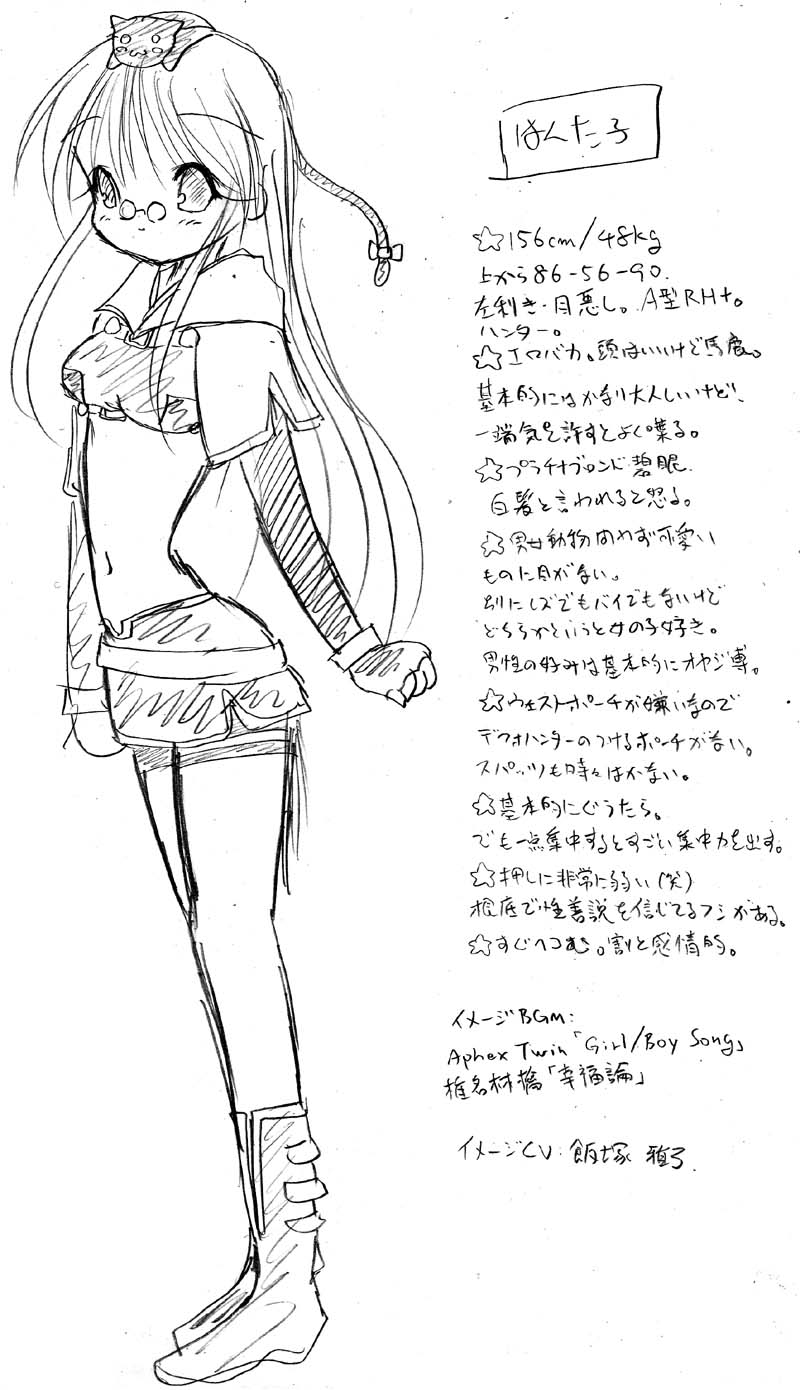 はんた子
☆156cm/48kg
上から86-56-90.
左利き・目悪し。A型RH+。
ハンター。
☆エロバカ。頭はいいけど馬鹿。
基本的にはかなり大人しいけど、
一端気を許すとよく喋る。
☆プラチナブロンド碧眼.
白髪と言われると怒る。
☆男女動物問わず可愛い
ものに目がない。
別にレズでもバイでもないけど
どちらかというと女の子好き。
男性の好みは基本的にオヤジ専。
☆ウェストポーチが嫌いなので
デフォハンターのつけるポーチがない。
スパッツも時々はかない。
☆基本的にぐうたら。
でも一点集中するとすごい集中力を出す。
☆押しに非常に弱い(笑)
根底で性善説を信じてるフシがある。
☆すぐへこむ。割と感情的。
イメージBGM:
Aphex Twin「Girl/Boy Song」
椎名林檎「幸福論」
イメージCV:飯塚雅弓.